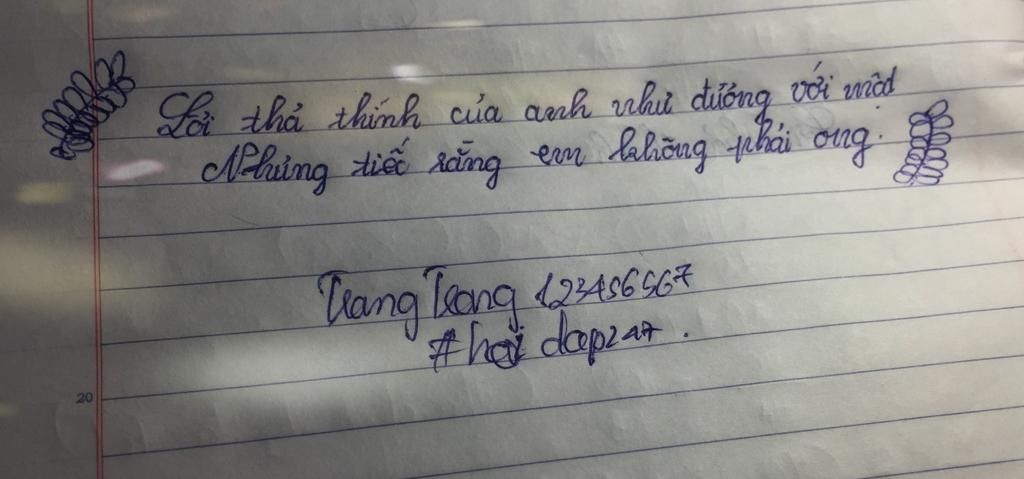 Lời thả thính của anh như đường với mật
Nhưng tiếc rằng em không phải ong.
TrangTrang 123456567
#hoidap247.
20